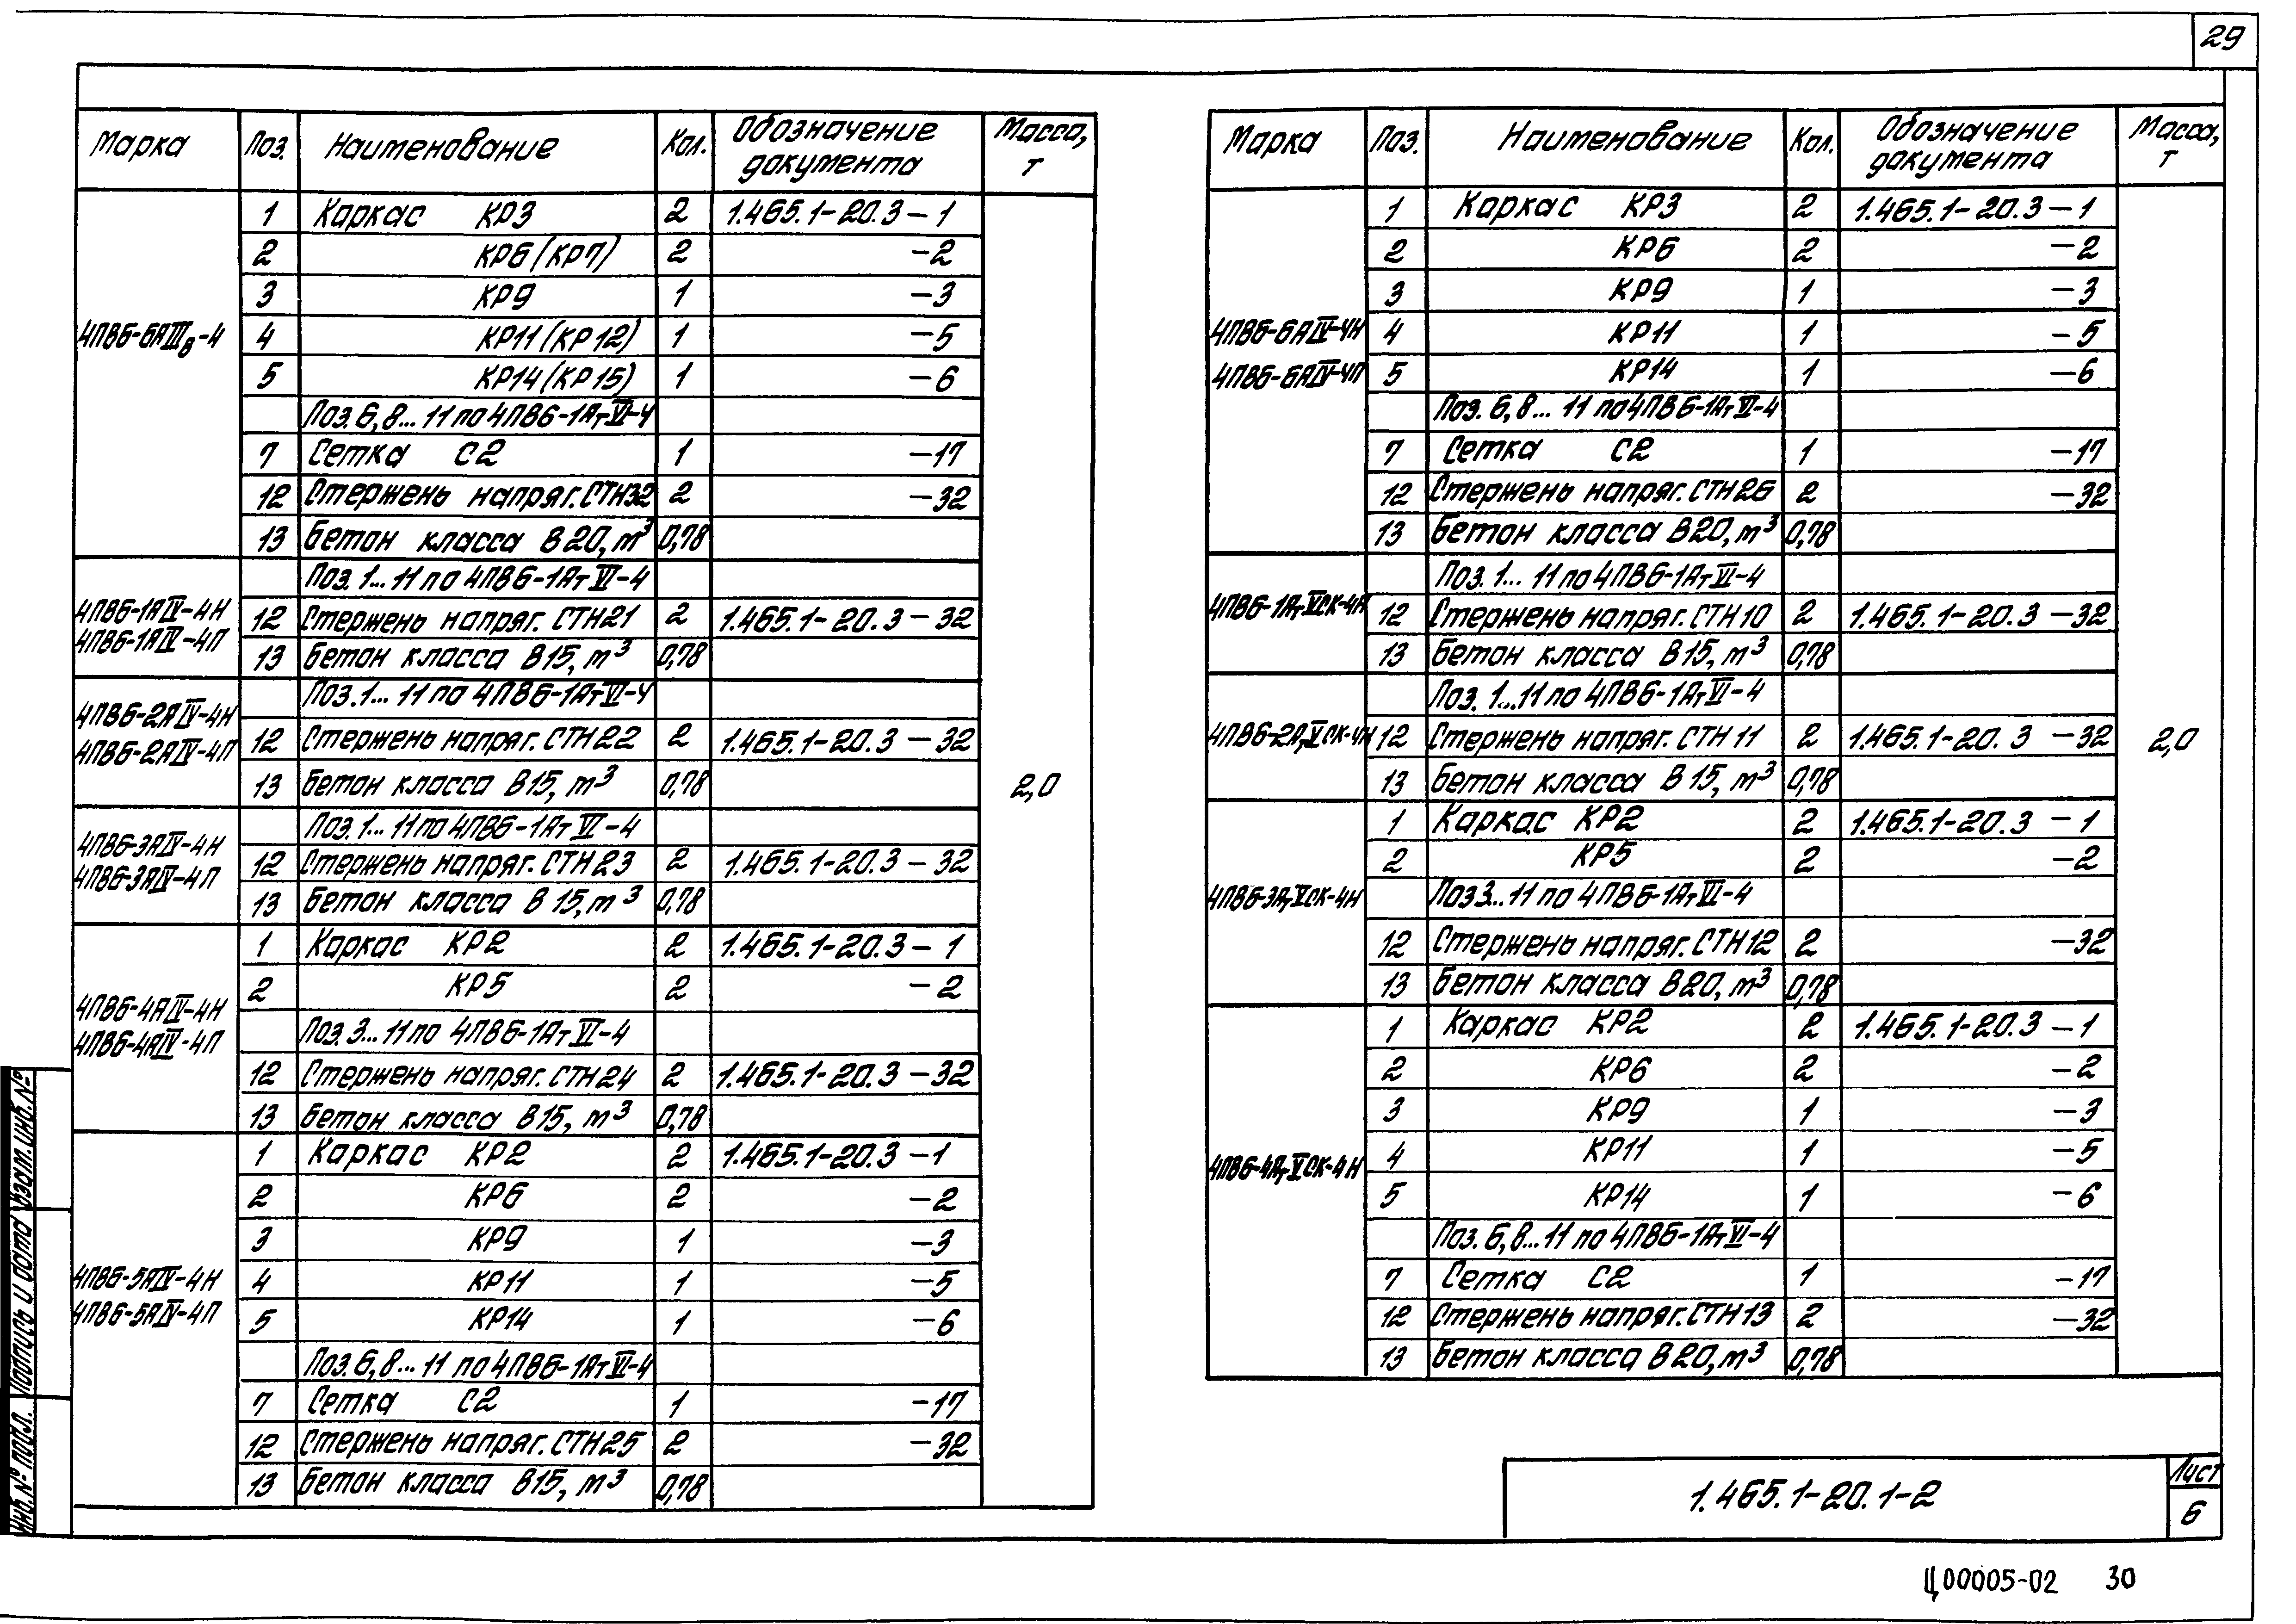 29
Марка Поз. Наименование Кол. Обозначение документа Масса, т
4ПВ6-6АIIIв-4
1 Каркас КР3 2 1.465.1-20.3-1
2 КР6(КР7) 2 -2
3 КР9 1 -3
4 КР11(КР12) 1 -5
5 КР14(КР15) 1 -6
Поз. 6,8...11 по 4ПВ6-1АтVI-4
7 Сетка С2 1 -17
12 Стержень напряг. СТН32 2 -32
13 Бетон класса В20, м³ 0,78
4ПВ6-1АIV-4Н
4ПВ6-1АIV-4П
Поз. 1...11 по 4ПВ6-1АтVI-4
12 Стержень напряг. СТН21 2 1.465.1-20.3-32
13 Бетон класса В15, м³ 0,78
4ПВ6-2АIV-4Н
4ПВ6-2АIV-4П
Поз. 1...11 по 4ПВ6-1АтVI-4
12 Стержень напряг. СТН22 2 1.465.1-20.3-32
13 Бетон класса В15, м³ 0,78
2,0
4ПВ6-3АIV-4Н
4ПВ6-3АIV-4П
Поз. 1...11 по 4ПВ6-1АтVI-4
12 Стержень напряг. СТН23 2 1.465.1-20.3-32
13 Бетон класса В15, м³ 0,78
4ПВ6-4АIV-4Н
4ПВ6-4АIV-4П
1 Каркас КР2 2 1.465.1-20.3-1
2 КР5 2 -2
Поз. 3...11 по 4ПВ6-1АтVI-4
12 Стержень напряг. СТН24 2 1.465.1-20.3-32
13 Бетон класса В15, м³ 0,78
4ПВ6-5АIV-4Н
4ПВ6-5АIV-4П
1 Каркас КР2 2 1.465.1-20.3-1
2 КР6 2 -2
3 КР9 1 -3
4 КР11 1 -5
5 КР14 1 -6
Поз. 6,8...11 по 4ПВ6-1АтVI-4
7 Сетка С2 1 -17
12 Стержень напряг. СТН25 2 -32
13 Бетон класса В15, м³ 0,78
Марка Поз. Наименование Кол. Обозначение документа Масса, т
4ПВ6-6АIV-4Н
4ПВ6-6АIV-4П
1 Каркас КР3 2 1.465.1-20.3-1
2 КР6 2 -2
3 КР9 1 -3
4 КР11 1 -5
5 КР14 1 -6
Поз. 6,8...11 по 4ПВ6-1АтVI-4
7 Сетка С2 1 -17
12 Стержень напряг. СТН26 2 -32
13 Бетон класса В20, м³ 0,78
4ПВ6-1АтVСК-4Н
Поз. 1...11 по 4ПВ6-1АтVI-4
12 Стержень напряг. СТН10 2 1.465.1-20.3-32
13 Бетон класса В15, м³ 0,78
4ПВ6-2АтVСК-4Н
Поз. 1...11 по 4ПВ6-1АтVI-4
12 Стержень напряг. СТН11 2 1.465.1-20.3-32
13 Бетон класса В15, м³ 0,78
2,0
4ПВ6-3АтVСК-4Н
1 Каркас КР2 2 1.465.1-20.3-1
2 КР5 2 -2
Поз 3...11 по 4ПВ6-1АтVI-4
12 Стержень напряг. СТН12 2 -32
13 Бетон класса В20, м³ 0,78
4ПВ6-4АтVСК-4Н
1 Каркас КР2 2 1.465.1-20.3-1
2 КР6 2 -2
3 КР9 1 -3
4 КР11 1 -5
5 КР14 1 -6
Поз. 6,8...11 по 4ПВ6-1АтVI-4
7 Сетка С2 1 -17
12 Стержень напряг. СТН13 2 -32
13 Бетон класса В20, м³ 0,78
Инв.№ подл. Подпись и дата Взам.инв.№
1.465.1-20.1-2
Лист
6
Ц00005-02 30